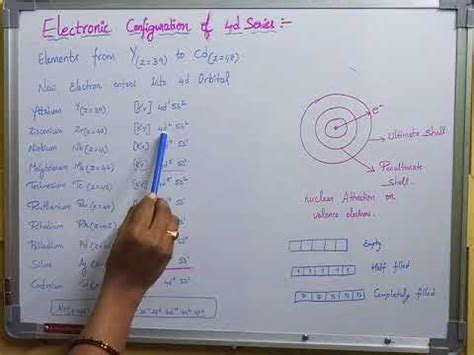 Electronic Configuration of 4d Series:-
Elements from Y(z=39) to Cd(z=48)
New Electron enters into 4d Orbital
Yttrium Y(z=39) [Kr] 4d¹ 5s²
Zirconium Zr(z=40) [Kr] 4d² 5s²
Niobium Nb(z=41) [Kr] 5s¹
Molybdenum (z=42) [Kr] 5s¹
Technetium Tc(z=43) [Kr]
Ruthenium Ru(z=44) 5s¹
Rhodium 5s¹
Palladium
Silver Ag
Cadmium Cd 4d¹⁰ 5s²
e⁻
Ultimate shell
Penultimate
shell.
nuclear Attraction on
valence electron.
Empty
Half filled
Completely filled